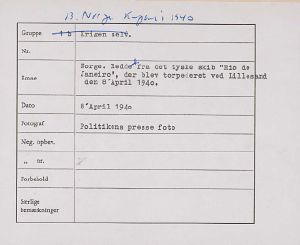 13. Norge Krigen i 1940
Gruppe 1 b Krigen selv.
Nr.
Emne Norge. Reddet fra det tyske skib "Rio de
Janeiro", der blev torpederet ved Lillesand
den 8 April 1940.
Dato 8 April 1940
Fotograf Politikens presse foto
Neg. opbev.
" nr.
Forbehold
Særlige
bemærkninger